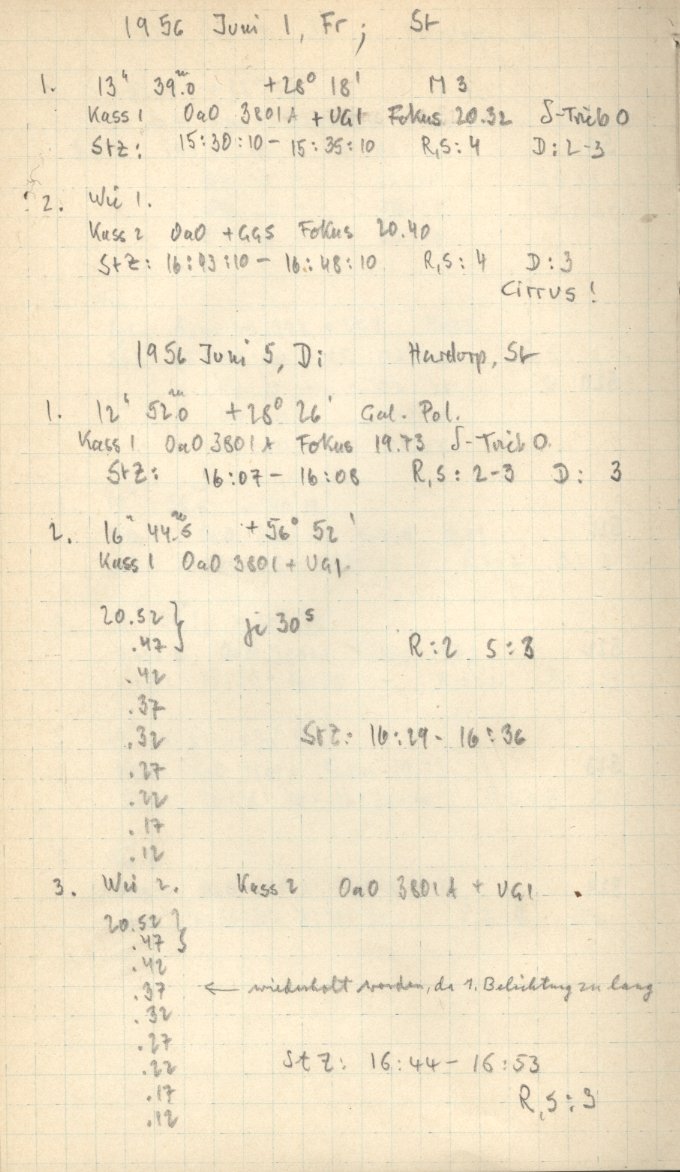 1956 Juni 1, Fr; St
1. 13h 39m.0 +28° 18' M 3
Kass 1 OaO 3801A + UG1 Fokus 20.32 δ-Trieb 0
StZ: 15:30:10 - 15:35:10 R,S: 4 D: 2-3
2. Wie 1.
Kass 2 OaO + GG5 Fokus 20.40
StZ: 16:43:10 - 16:48:10 R,S: 4 D: 3
Cirrus!
1956 Juni 5, Di Hardorp, St
1. 12h 52m.0 +28° 26' Gal. Pol.
Kass 1 OaO 3801A Fokus 19.73 δ-Trieb 0
StZ: 16:07 - 16:08 R,S: 2-3 D: 3
2. 16h 44m.5 +56° 52'
Kass 1 OaO 3801 + UG1
20.52 } je 30s
.47
R: 2 S: 3
.42
.37
.32 StZ: 16:29 - 16:36
.27
.22
.17
.12
3. Wie 2. Kass 2 OaO 3801A + UG1
20.52 }
.47
.42
.37 ← wiederholt worden, da 1. Belichtung zu lang
.32
.27
.22 StZ: 16:44 - 16:53
.17 R,S: 3
.12